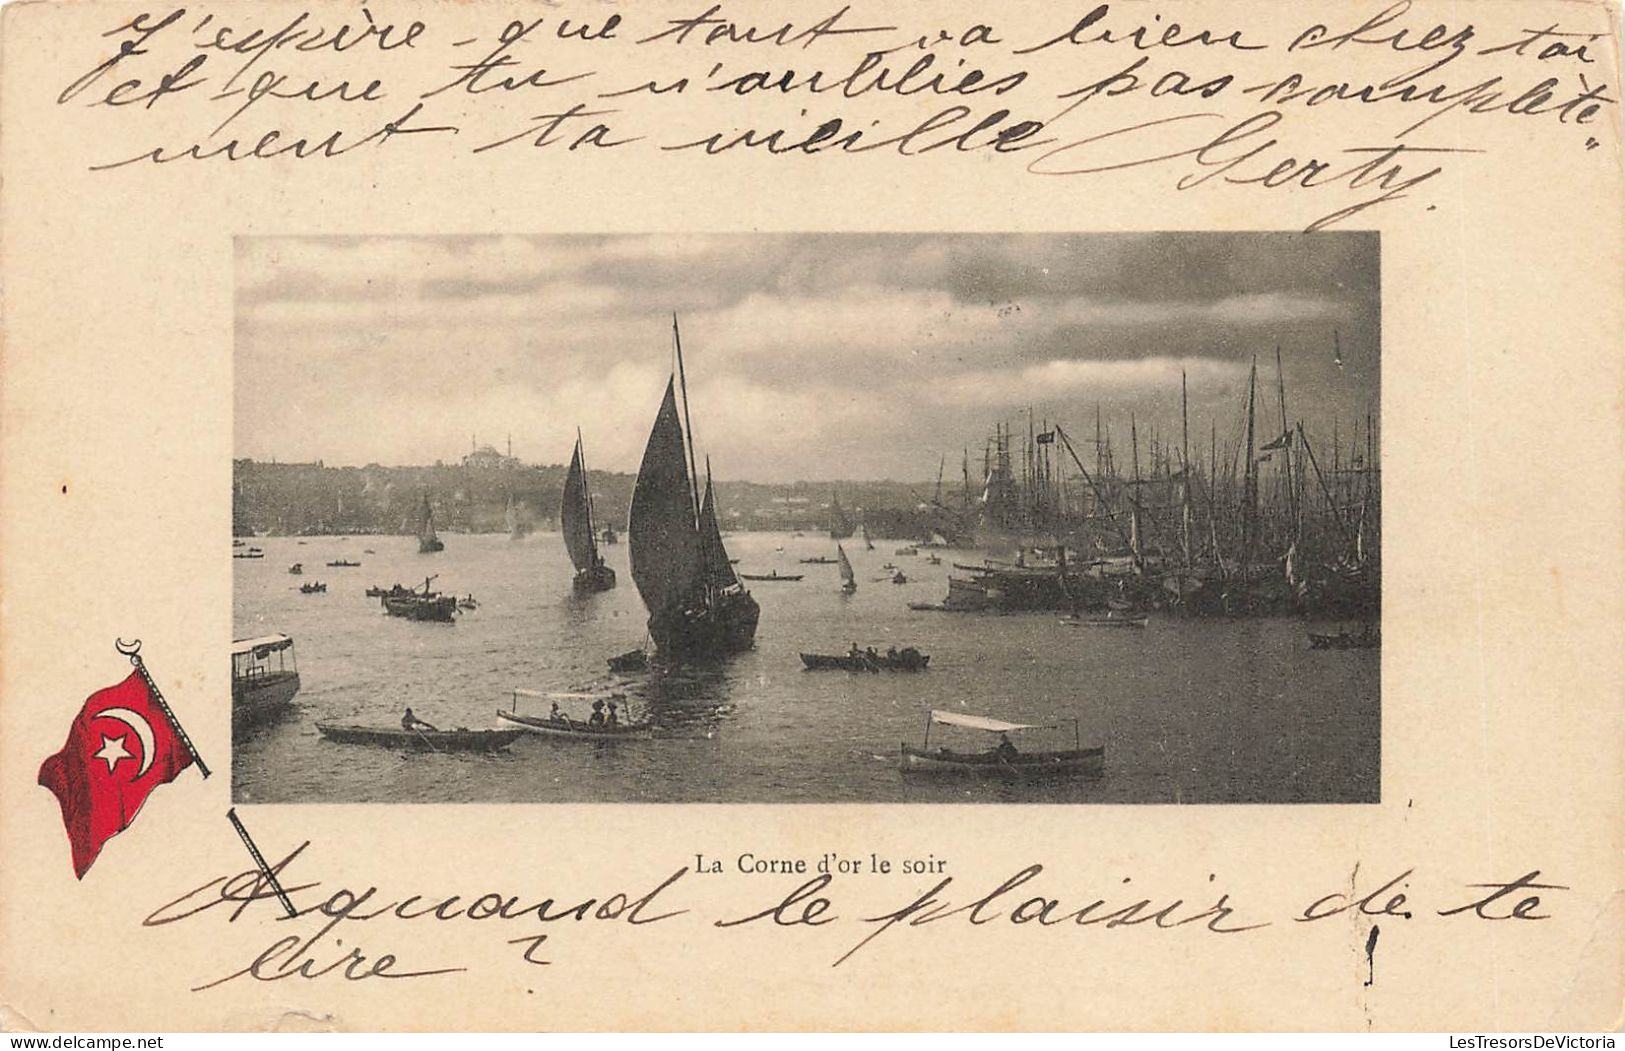 J'espère que tout va bien chez toi
et que tu n'oublies pas complète"
ment ta vieille Gerty.
La Corne d'or le soir
A quand le plaisir de te
lire ?
delcampe.net
LesTresorsDeVictoria